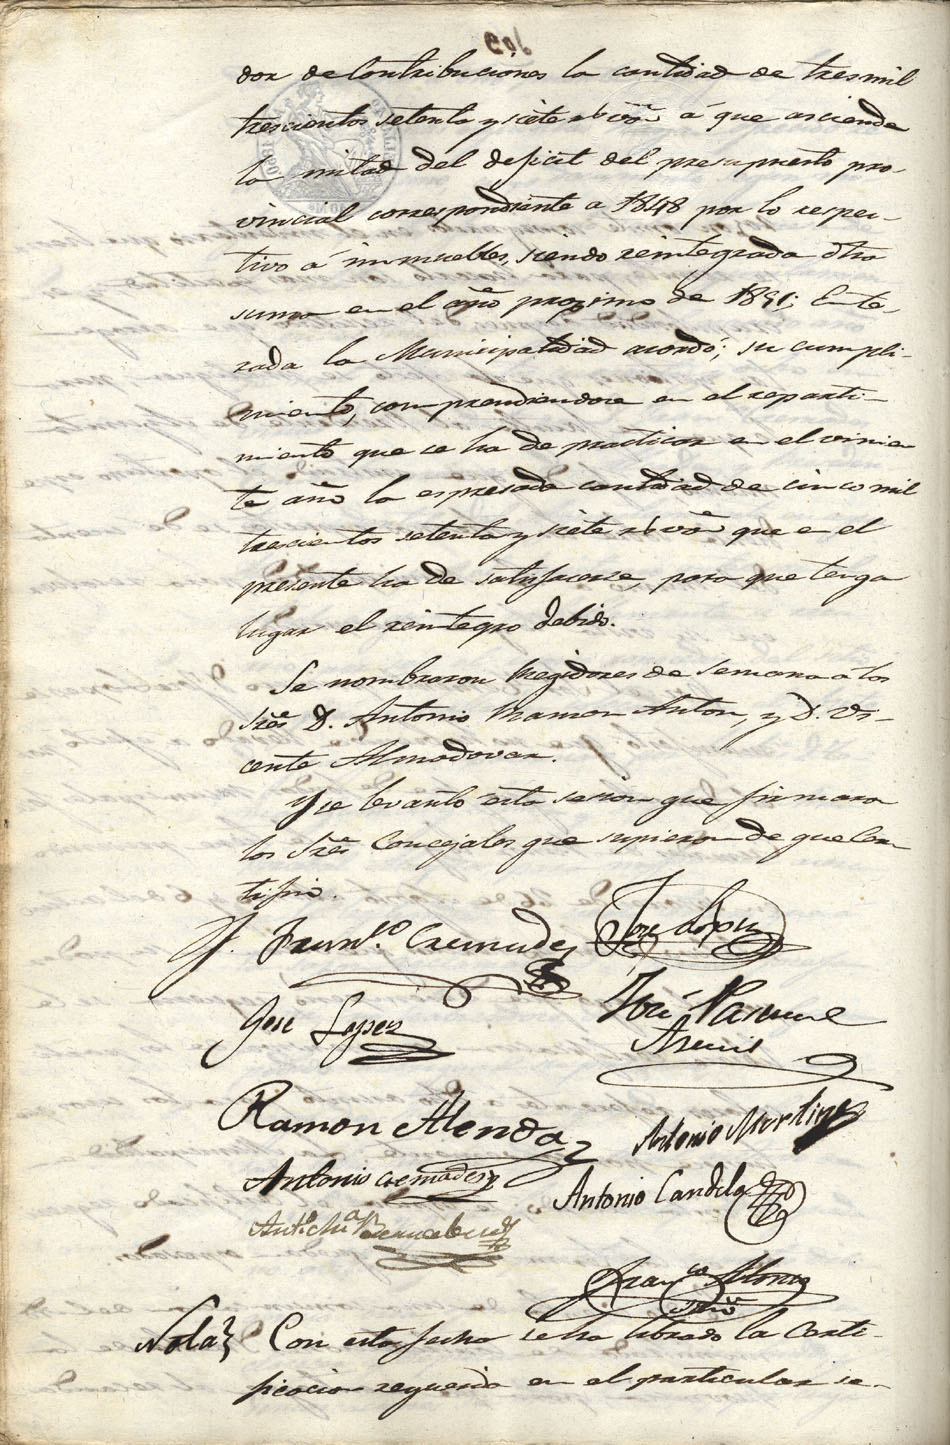 dor de Contribuciones la cantidad de tres mil
trescientos setenta y siete rs von á que asciende
la mitad del deficit del presupuesto pro-
vincial correspondiente a 1848 por lo respec-
tivo á inmuebles, siendo reintegrada dha
suma en el año proximo de 1851; Ente-
rada la Municipalidad acordó; su cumpli-
miento, comprendiendose en el reparti-
miento que se ha de practicar en el vinien
te año la espresada cantidad de cinco mil
trescientos setenta y siete rs von que en el
presente ha de satisfacerse, para que tenga
lugar el reintegro debido.
Se nombraron Regidores de semana a los
Sres D. Antonio Ramon Anton, y D. Vi-
cente Almodovar.
Y se levantó esta sesion que firmaron
los Sres Concejales que supieron de que Cer-
tifico.
Franco. Cremades
José Lopez
Jose Lopez
José Pascual
Asencio
Ramon Alenda
Antonio Martinez
Antonio Cremades
Antonio Candela
Anto. Ma Bernabeu
Franco Alonso
Srio
Nota
Con esta fecha se ha librado la Certi-
ficacion requerida en el particular se-